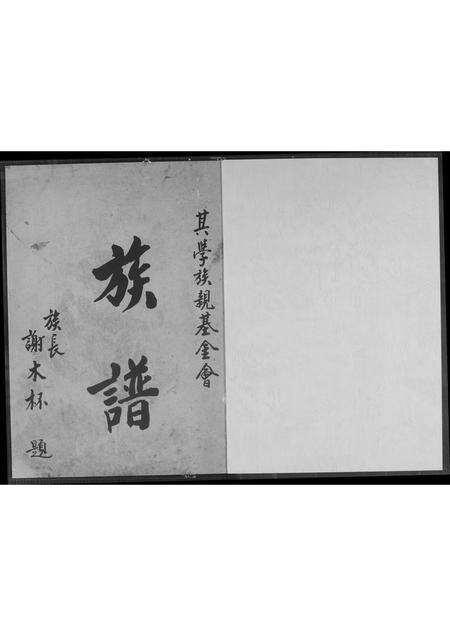 其學族親基金會
族譜
族長
謝木杯 題